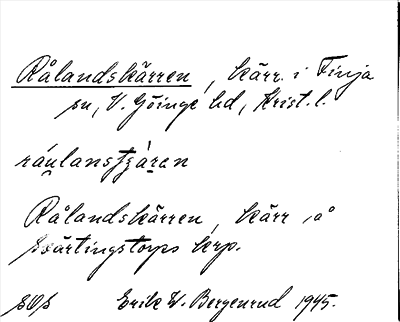 Rålandskärren, kärr i Finja
sn, V. Göinge hd, Krist. l.
råulansʃʒären
Rålandskärren, kärr på
Svärtingstorps krp.
SOS Erik W. Bergenrud 1945.